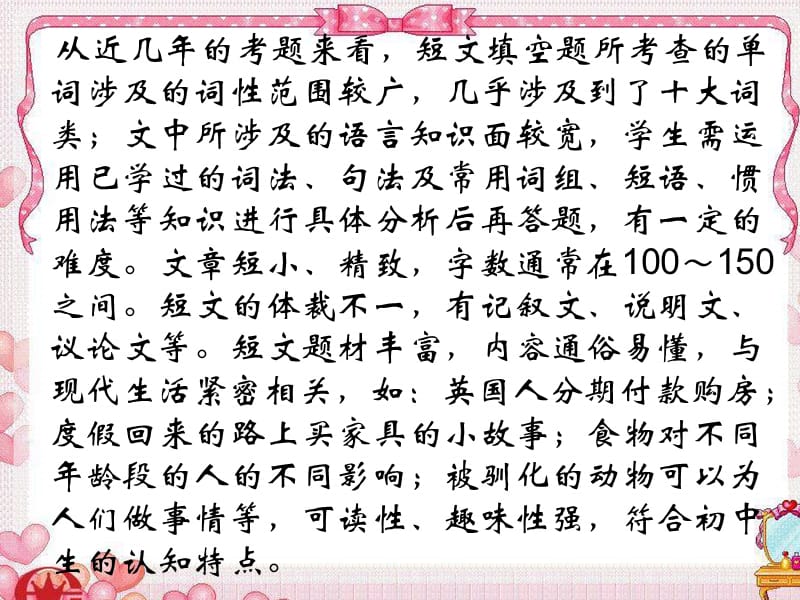 从近几年的考题来看，短文填空题所考查的单
词涉及的词性范围较广，几乎涉及到了十大词
类；文中所涉及的语言知识面较宽，学生需运
用已学过的词法、句法及常用词组、短语、惯
用法等知识进行具体分析后再答题，有一定的
难度。文章短小、精致，字数通常在100～150
之间。短文的体裁不一，有记叙文、说明文、
议论文等。短文题材丰富，内容通俗易懂，与
现代生活紧密相关，如：英国人分期付款购房；
度假回来的路上买家具的小故事；食物对不同
年龄段的人的不同影响；被驯化的动物可以为
人们做事情等，可读性、趣味性强，符合初中
生的认知特点。